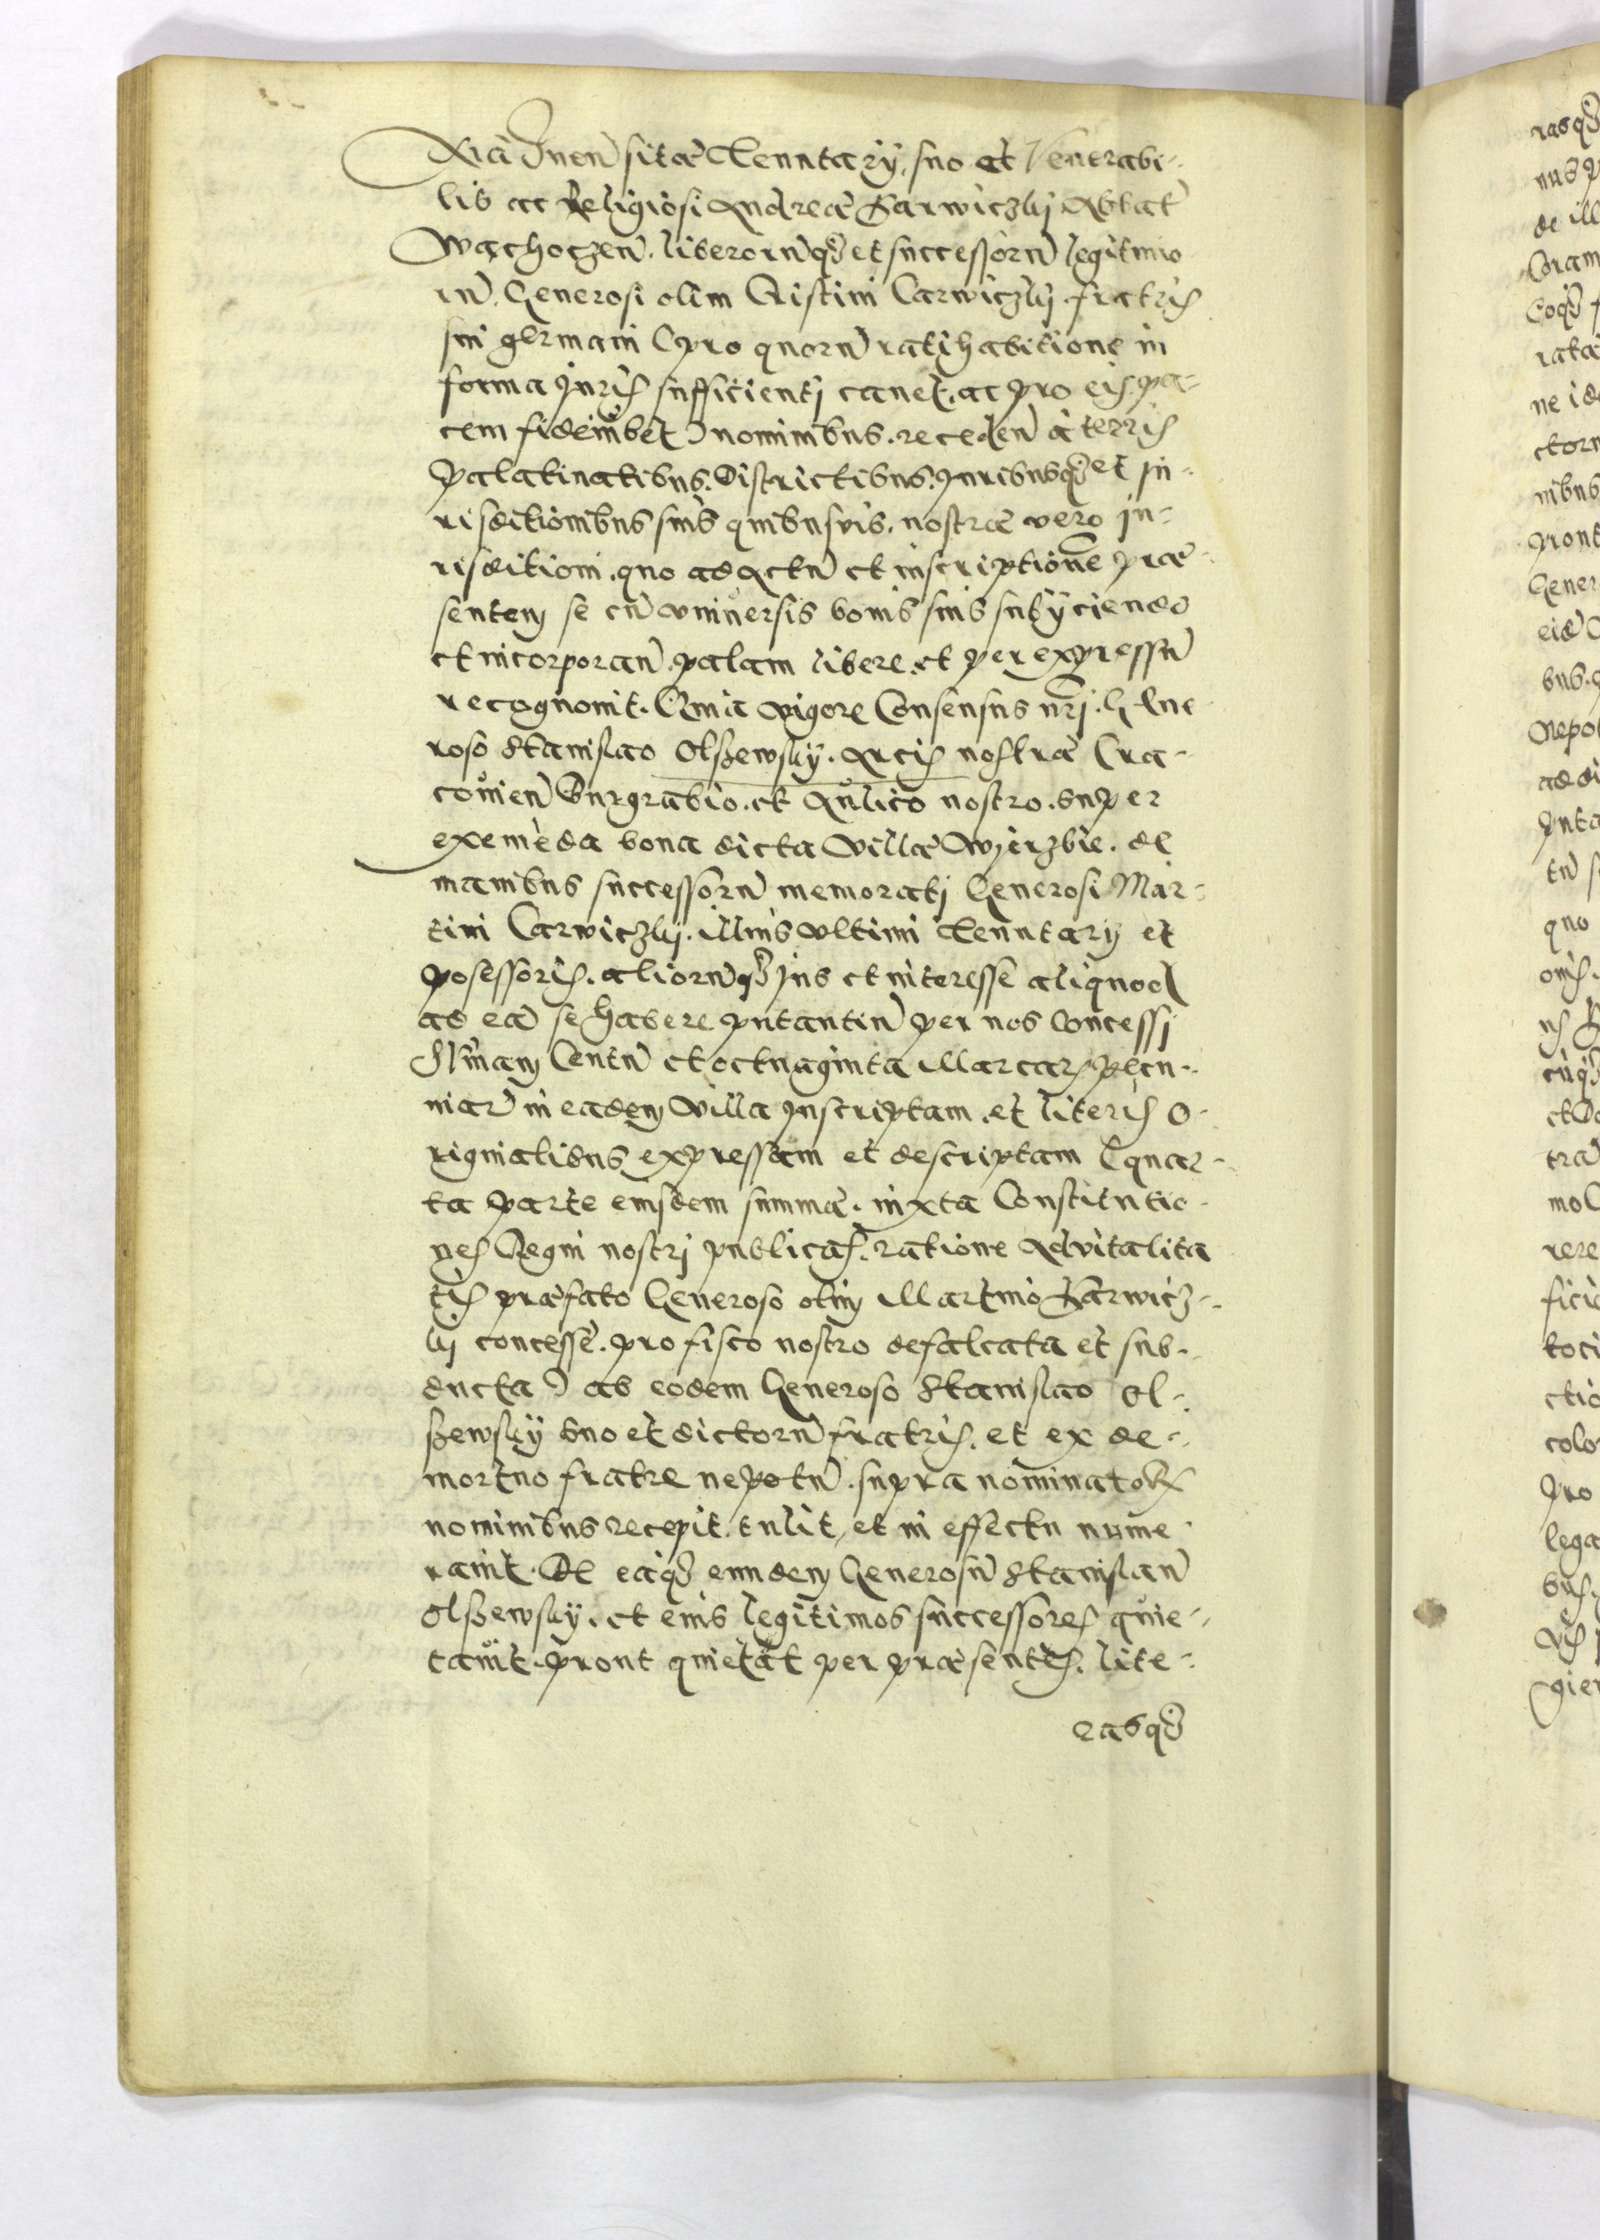 sitæ Tenutarij, suo et Venerabi-
lis ac Religiosi Andreæ Karwiczkij Abbat
Wąchoczen. liberorūq̃ et successorū legitimo
rū, Generosi olim Cristini Carwiczkij fratris
sui germani (pro quorū ratihabitione in
forma Juris sufficienti cauet, ac pro eis pa-
cem fideiubet) nominibus. receden̄ à terris
Palatinatibus. Districtibus. Juribusq̃ et Ju-
risditionibus suis quibusuis. nostræ vero Ju-
risditioni. quo ad Actū et inscriptionē præ-
sentem se cū vniuersis bonis suis subijciendo
et incorporan̄. palam libere et per expressū
recognouit. Quia vigore Consensus nrj. Gene
roso Stanislao Olszewskij. Arcis nostræ Cra-
couien̄ Burgrabio. et Aulico nostro. super
eximēda bona dicta Villæ Wierzbie. de
manibus successorū memoratj Generosi Mar-
tini Carwiczkij. illius vltimi Tenutarij et
Posessoris. aliorūq̃ Jus et interesse aliquod
ad ea se habere putantiū per nos concessi
Sūmam Centū et octuaginta Marcarū pecu-
niar̄ in eadem Villa Inscriptam. et literis O-
riginalibus expressam et descriptam (quar-
ta parte eiusdem summæ. iuxta Constitutio-
nes Regni nostrj publicas. ratione Aduitalita
tis præfato Generoso olim Martino Karwicz-
kij concessæ. pro fisco nostro defalcata et sub-
ducta) ab eodem Generoso Stanislao Ol-
szewskij suo et dictorū fratris. et ex de-
mortuo fratre nepotū. supra nominatorū
nominibus recepit. tulit, et in effectu nume-
rauit. De eaq̃ eundem Generosū Stanislaū
Olszewskij. et eius legitimos successores quie-
tauit. prout quietat per præsentes. lite-
rasq̃